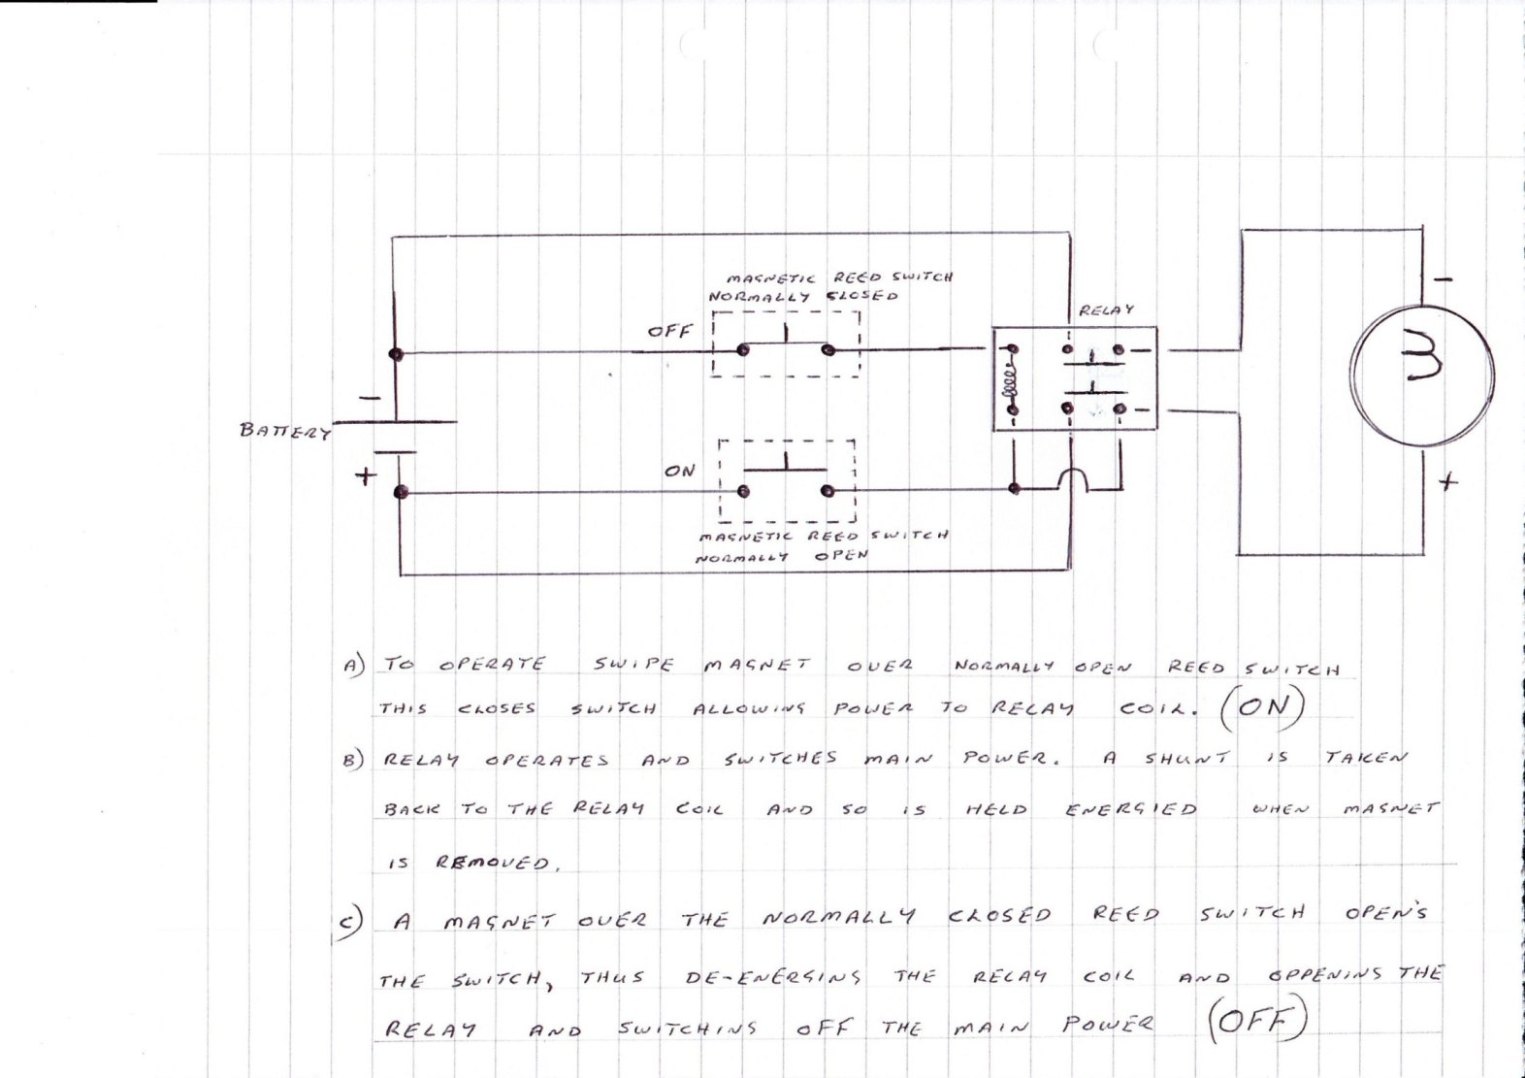 MAGNETIC REED SWITCH
NORMALLY CLOSED
OFF
RELAY
-
-
BATTERY
+
ON
+
M
MAGNETIC REED SWITCH
NORMALLY OPEN
A) TO OPERATE SWIPE MAGNET OVER NORMALLY OPEN REED SWITCH
THIS CLOSES SWITCH ALLOWING POWER TO RELAY COIL. (ON)
B) RELAY OPERATES AND SWITCHES MAIN POWER. A SHUNT IS TAKEN
BACK TO THE RELAY COIL AND SO IS HELD ENERGIED WHEN MAGNET
IS REMOVED.
C) A MAGNET OVER THE NORMALLY CLOSED REED SWITCH OPEN'S
THE SWITCH, THUS DE-ENERGING THE RELAY COIL AND OPPENING THE
RELAY AND SWITCHING OFF THE MAIN POWER (OFF)